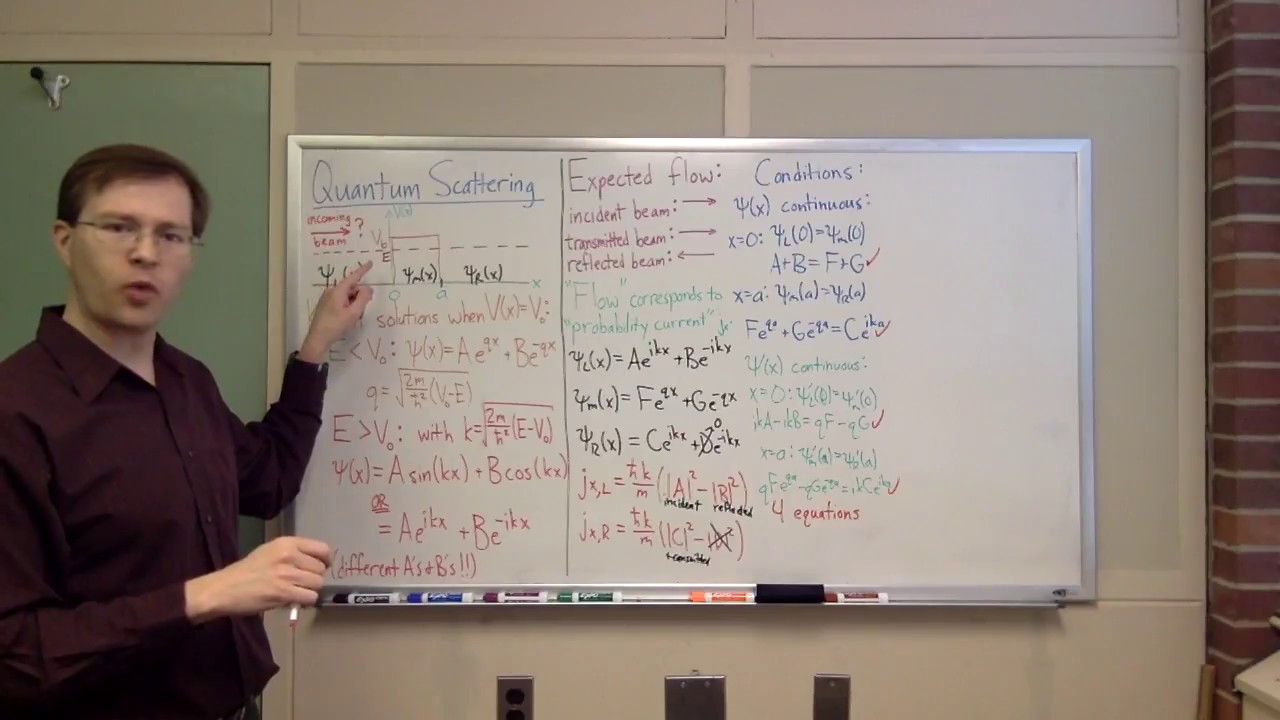 Quantum Scattering
incoming
beam ?
V(x)
V₀
E
ψ_m(x) ψ_R(x)
0 a x
solutions when V(x)=V₀:
E < V₀: ψ(x)=Ae^{qx}+Be^{-qx}
q=√(2m/ħ²(V₀-E))
E >V₀: with k=√(2m/ħ²(E-V₀))
ψ(x)=A sin(kx)+B cos(kx)
OR
=Ae^{ikx}+Be^{-ikx}
(different A's & B's!!)
Expected flow:
incident beam: →
transmitted beam: →
reflected beam: ←
"Flow" corresponds to
"probability current" jx:
ψ_L(x)=Ae^{ikx}+Be^{-ikx}
ψ_m(x)=Fe^{qx}+Ge^{-qx}
ψ_R(x)=Ce^{ikx}+De^{-ikx}
0
j_{x,L}=ħk/m(|A|²-|B|²)
incident reflected
j_{x,R}=ħk/m(|C|²-|D|²)
transmitted
Conditions:
ψ(x) continuous:
x=0: ψ_L(0)=ψ_m(0)
A+B=F+G✓
x=a: ψ_m(a)=ψ_R(a)
Fe^{qa}+Ge^{-qa}=Ce^{ika}✓
ψ'(x) continuous:
x=0: ψ'_L(0)=ψ'_m(0)
ikA-ikB=qF-qG✓
x=a: ψ'_m(a)=ψ'_R(a)
qFe^{qa}-qGe^{-qa}=ikCe^{ika}✓
4 equations
EXPO